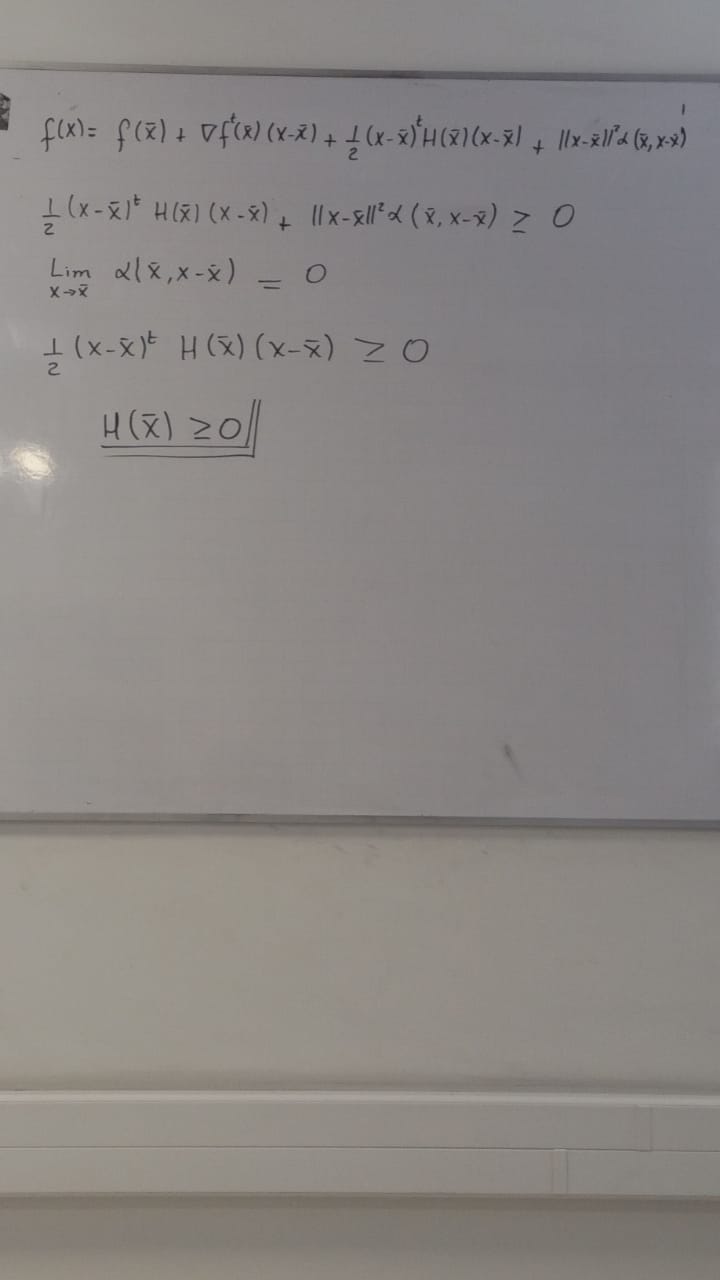 f(x)= f(x̄) + ∇fᵗ(x̄) (x-x̄) + 1/2 (x-x̄)ᵗ H(x̄) (x-x̄) + ||x-x̄||² α (x̄, x-x̄)
1/2 (x-x̄)ᵗ H(x̄) (x-x̄) + ||x-x̄||² α (x̄, x-x̄) ≥ 0
Lim x→x̄ α(x̄, x-x̄) = 0
1/2 (x-x̄)ᵗ H(x̄) (x-x̄) ≥ 0
H(x̄) ≥0